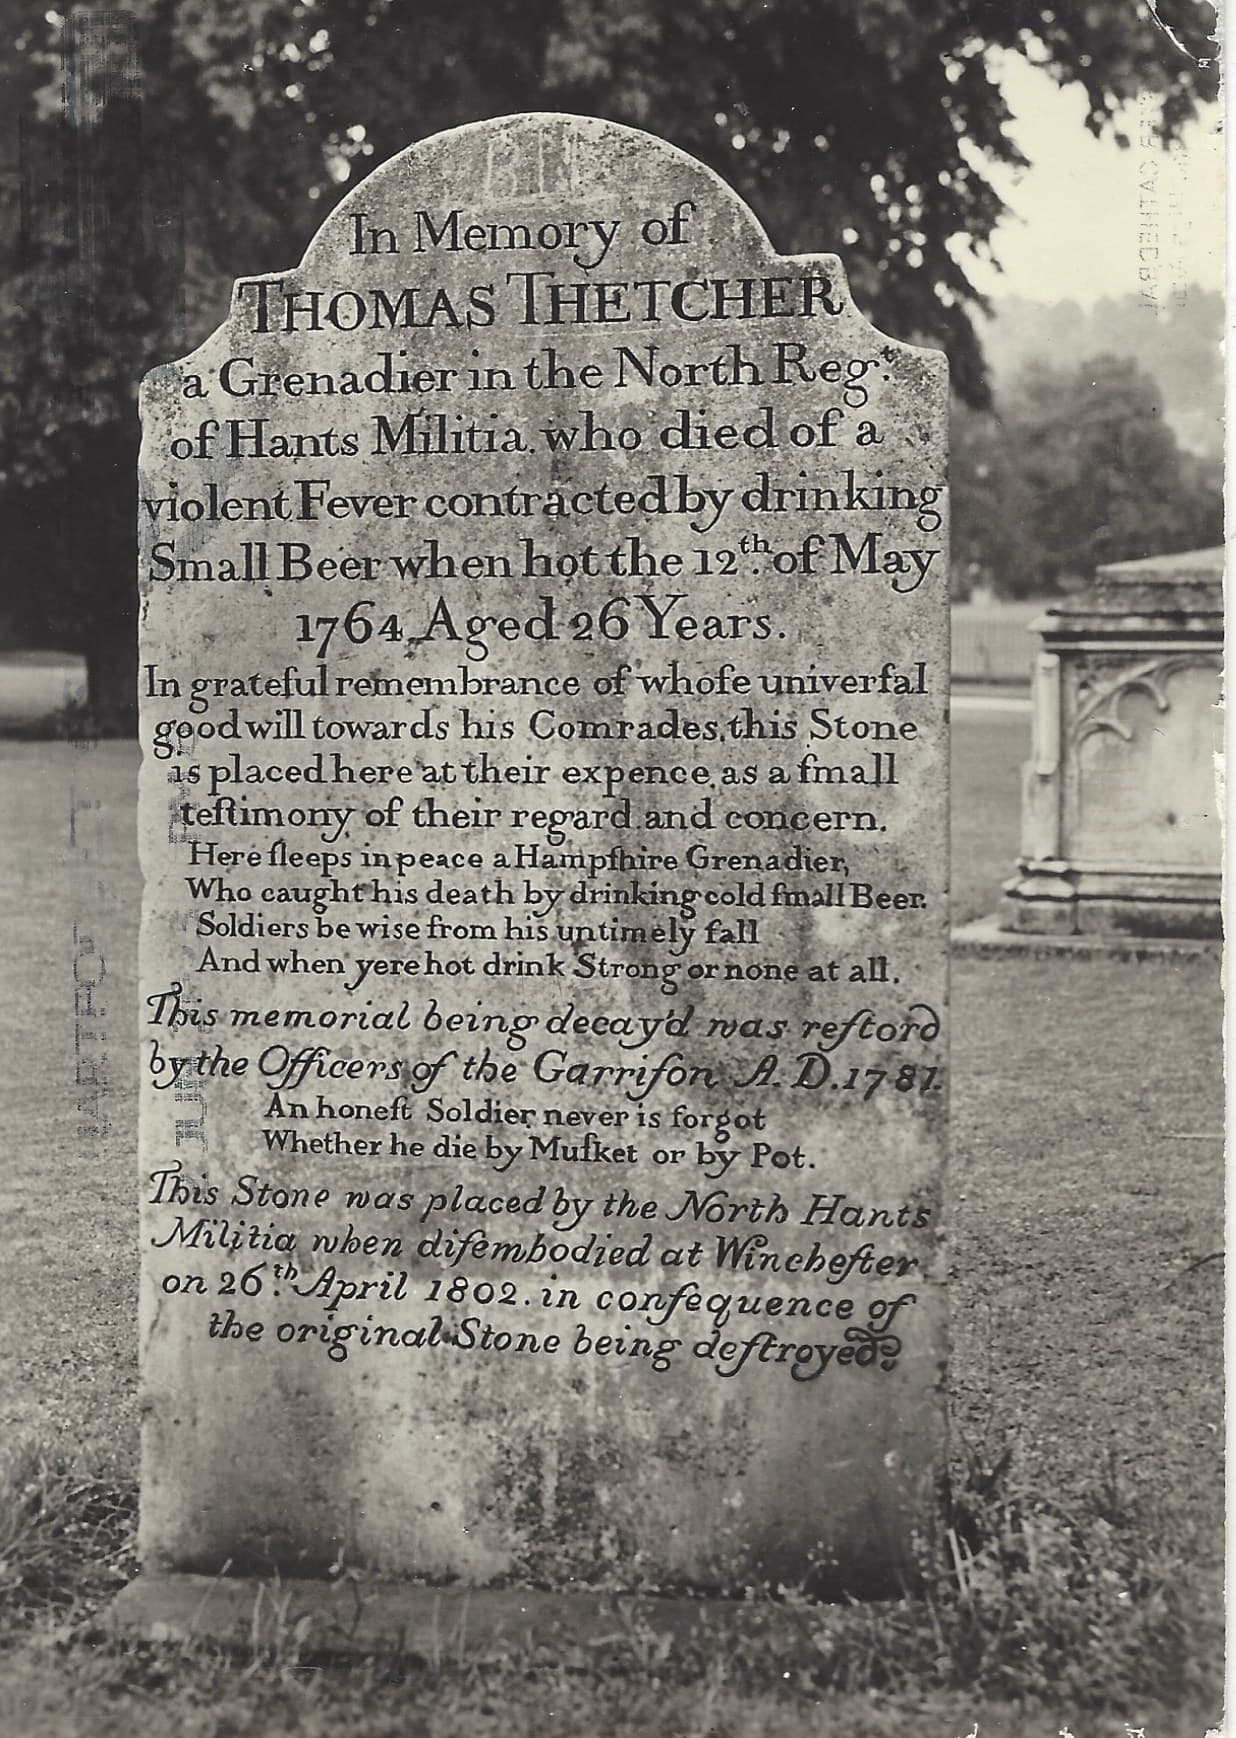 In Memory of
THOMAS THETCHER
a Grenadier in the North Reg.t
of Hants Militia, who died of a
violent Fever contracted by drinking
Small Beer when hot the 12th. of May
1764, Aged 26 Years.
In grateful remembrance of whoſe univerſal
good will towards his Comrades, this Stone
is placed here at their expence, as a ſmall
teſtimony of their regard and concern.
Here ſleeps in peace a Hampſhire Grenadier,
Who caught his death by drinking cold ſmall Beer.
Soldiers be wise from his untimely fall
And when yere hot drink Strong or none at all.
This memorial being decay'd was reſtord
by the Officers of the Garriſon A.D. 1781.
An honeſt Soldier never is forgot
Whether he die by Muſket or by Pot.
This Stone was placed by the North Hants
Militia when diſembodied at Wincheſter
on 26th. April 1802. in conſequence of
the original Stone being deſtroyed